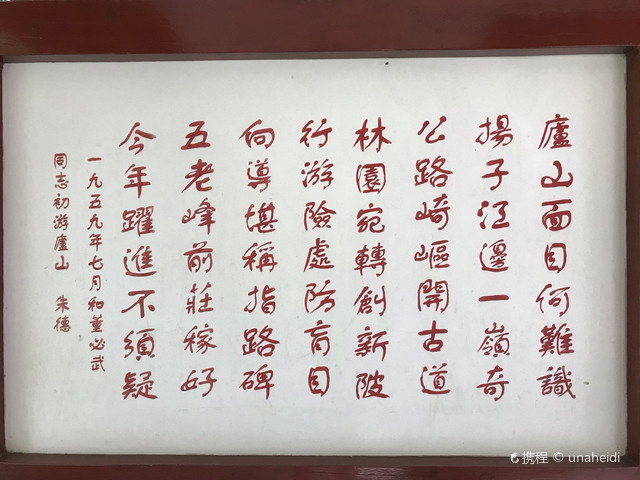 廬山面目何難識
揚子江邊一嶺奇
公路崎嶇開古道
林園宛轉創新陂
行游險處防盲目
向導堪稱指路碑
五老峰前莊稼好
今年躍進不須疑
一九五九年七月和董必武
同志初游廬山 朱德
携程 © unaheidi